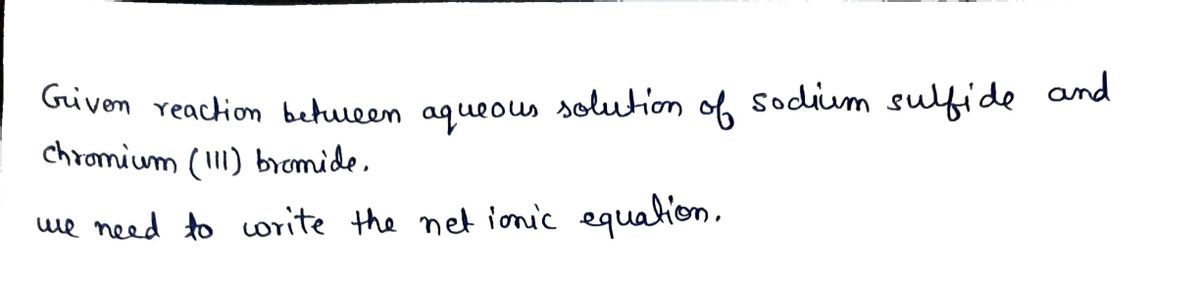 Given reaction between aqueous solution of sodium sulfide and
chromium (III) bromide.
we need to write the net ionic equation.